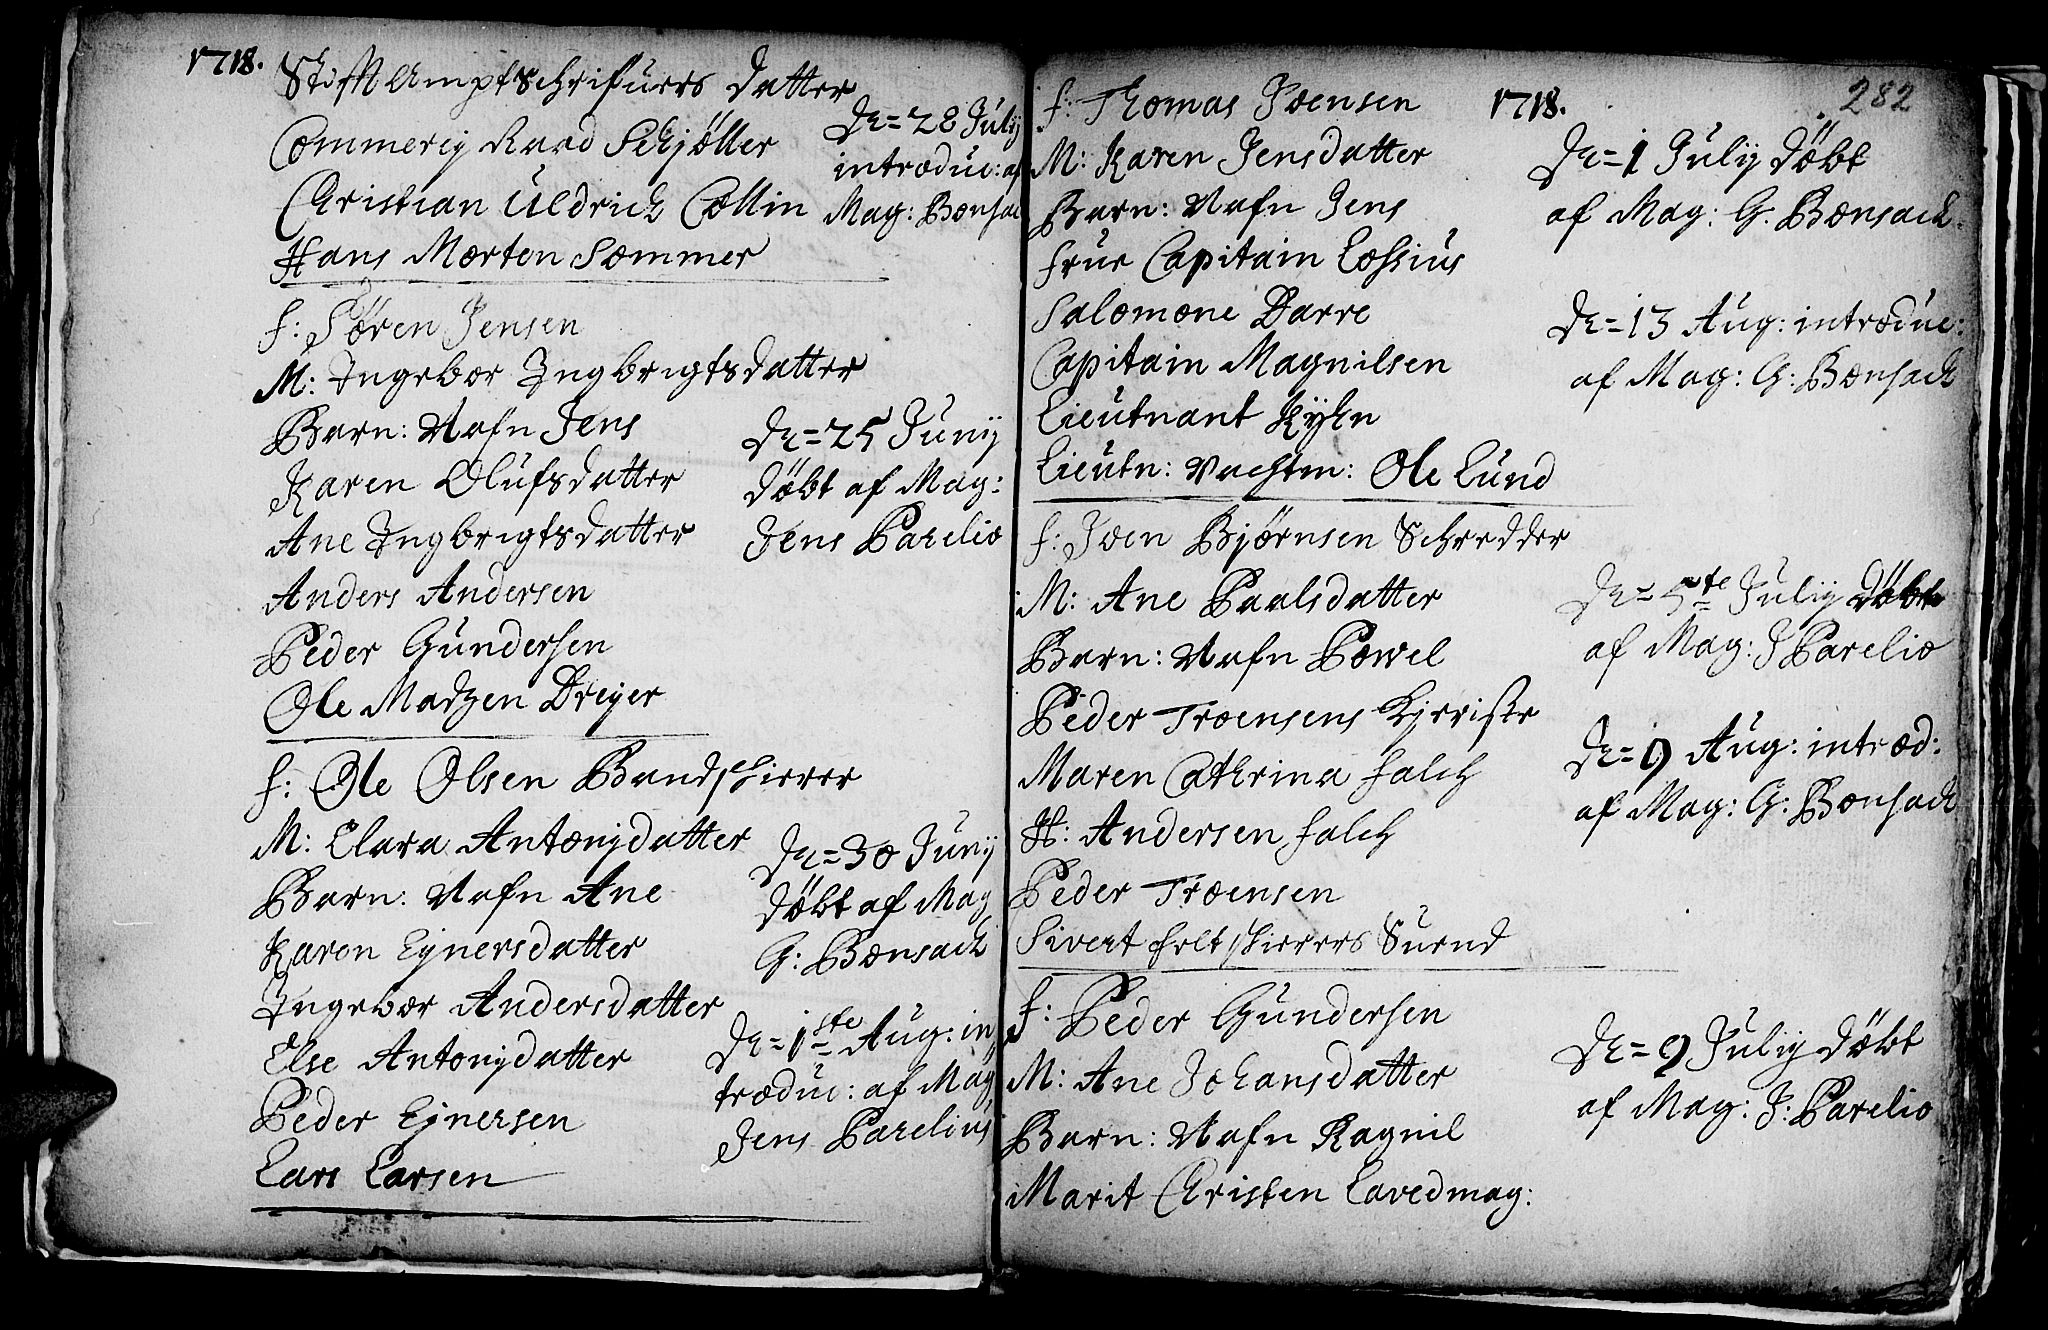 1718.
Stift Amptschrifuers datter
Commercij Raad Schjøller
Christian Uldrich Collin
Hans Morten Sommer
D= 28 Julij
introduc: af
Mag: Bonsac
f: Søren Jensen
M: Ingebor Ingbrigtsdatter
Barn: Nafn Jens
Karen Olufsdatter
Ane Ingbrigtsdatter
Anders Andersen
Peder Gundersen
Ole Madzen Dreyer
D= 25 Junij
døbt af Mag:
Jens Parelio
f: Ole Olsen Bundschierer
M: Clara Antonijdatter
Barn: Nafn Ane
Karen Ejnersdatter
Ingebor Andersdatter
Else Antonijdatter
Peder Ejnersen
Lars Larsen
D= 30 Junij
døbt af Mag
G: Bonsach
D= 1ste Aug: in
troduc: af Mag
Jens Parelius
282
1718.
f: Thomas Joensen
M: Karen Jensdatter
Barn: Nafn Jens
Frue Capitain Lossius
Salomone Darre
Capitain Magnilsen
Lieutnant Kyhn
Lieutn: Vachtm: Ole Lund
D= 1 Julij døbt
af Mag: G. Bonsach.
D= 13 Aug: introduc:
af Mag: G: Bonsach
f: Joen Bjørnsen Schredder
M: Ane Paalsdatter
Barn: Nafn Powel
Peder Troensens Kjeriste
Maren Cathrina Falch
H: Andersen Falch
Peder Troensen
Sivert Feltschierers Suend
D= 5te Julij døbt
af Mag: J Parelio
D= 9 Aug: introd:
af Mag: G: Bonsach
f: Peder Gundersen
M: Ane Johansdatter
Barn: Nafn Ragnil
Marit Christen Lavedmag:
D= 9 Julij døbt
af Mag: J: Parelio